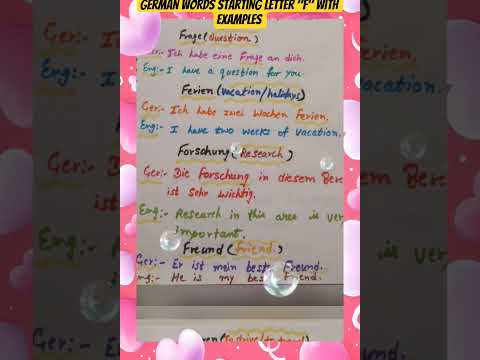 GERMAN WORDS STARTING LETTER "F" WITH
EXAMPLES
Frage (Question)
Ger:- Ich habe eine Frage an dich.
Eng:- I have a question for you.
Ferien (vacation/holidays)
Ger:- Ich habe zwei Wochen Ferien.
Eng:- I have two weeks of vacation.
Forschung (Research)
Ger:- Die Forschung in diesem Bere
ist sehr wichtig.
Eng:- Research in this area is ver
important.
Freund (friend.)
Ger:- Er ist mein beste Freund.
He is my best friend.